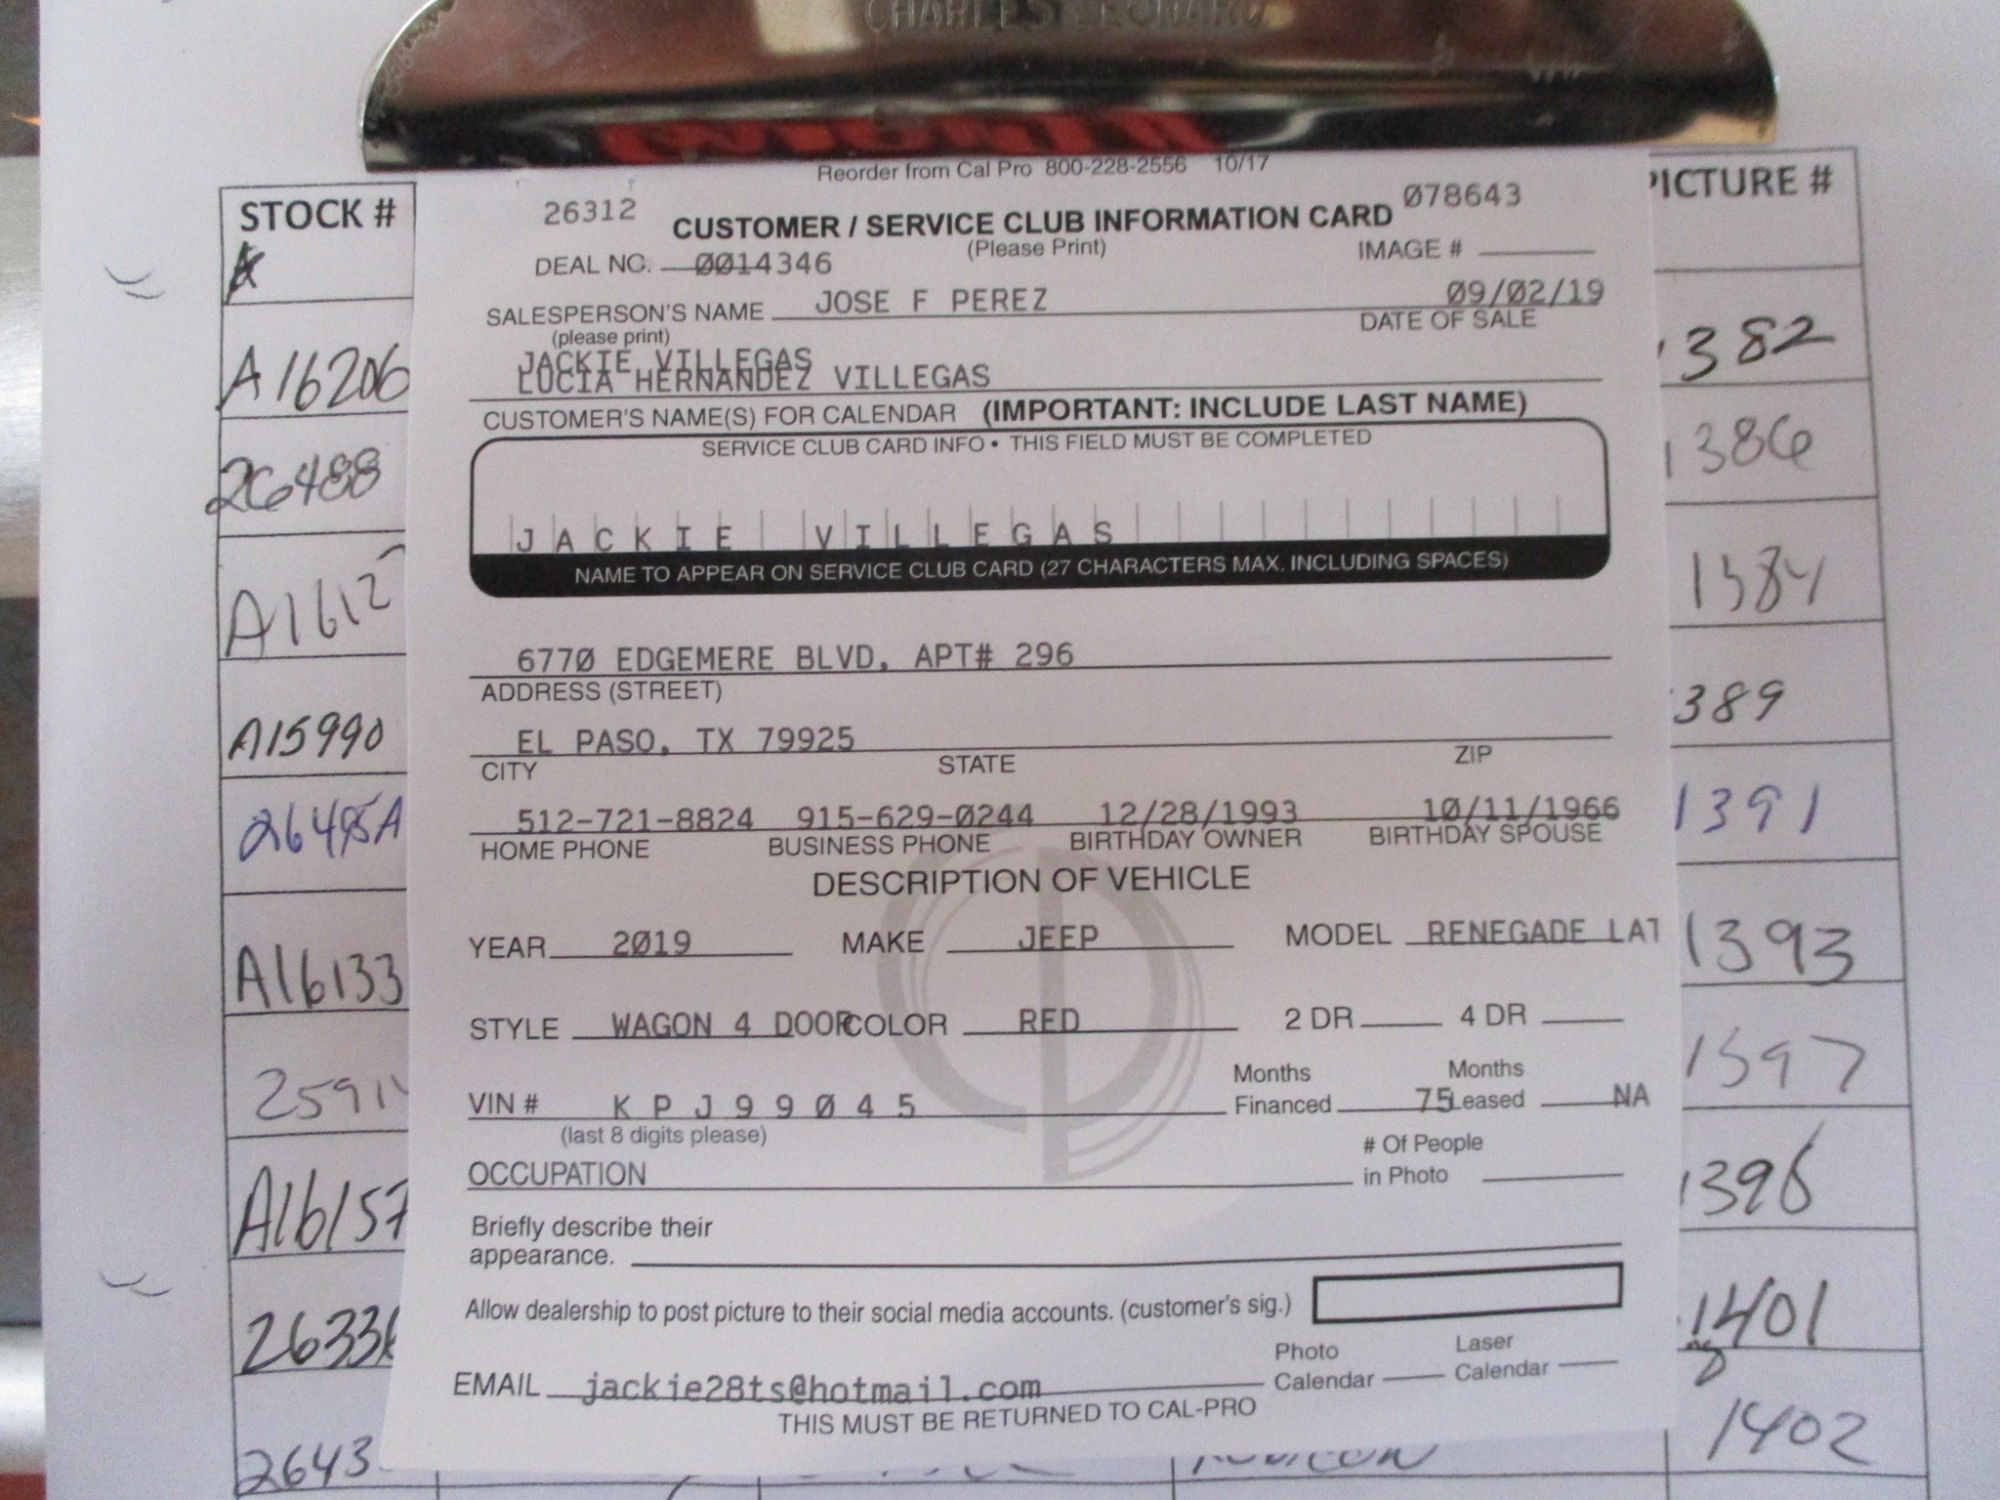 CHARLES LEONARD
Reorder from Cal Pro 800-228-2556 10/17
STOCK #
PICTURE #
26312
CUSTOMER / SERVICE CLUB INFORMATION CARD
078643
(Please Print)
DEAL NO. 0014346
IMAGE #
SALESPERSON'S NAME JOSE F PEREZ
09/02/19
(please print)
DATE OF SALE
JACKIE VILLEGAS
LUCIA HERNANDEZ VILLEGAS
CUSTOMER'S NAME(S) FOR CALENDAR (IMPORTANT: INCLUDE LAST NAME)
SERVICE CLUB CARD INFO • THIS FIELD MUST BE COMPLETED
JACKIE VILLEGAS
NAME TO APPEAR ON SERVICE CLUB CARD (27 CHARACTERS MAX. INCLUDING SPACES)
6770 EDGEMERE BLVD, APT# 296
ADDRESS (STREET)
EL PASO, TX 79925
CITY STATE ZIP
512-721-8824 915-629-0244 12/28/1993 10/11/1966
HOME PHONE BUSINESS PHONE BIRTHDAY OWNER BIRTHDAY SPOUSE
DESCRIPTION OF VEHICLE
YEAR 2019 MAKE JEEP MODEL RENEGADE LAT
STYLE WAGON 4 DOOR COLOR RED 2 DR 4 DR
VIN # KPJ99045 Months Financed 75 Months Leased NA
(last 8 digits please)
OCCUPATION
# Of People in Photo
Briefly describe their
appearance.
Allow dealership to post picture to their social media accounts. (customer's sig.)
Photo Calendar Laser Calendar
EMAIL jackie28ts@hotmail.com
THIS MUST BE RETURNED TO CAL-PRO
A16206
26488
A15990
26495A
A16133
A16157
1382
1386
1384
1389
1391
1393
1397
1396
1401
1402